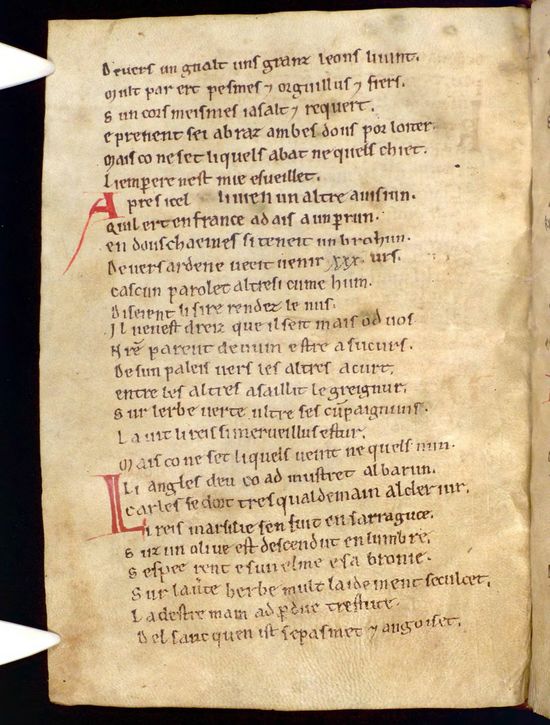 Deuers un gualt uns granz leons li uint.
Mult par ert pesmes ⁊ orguillus ⁊ fiers.
Sun cors meismes i asalt ⁊ requert.
E prenent sei a braz ambesdous por loiter.
Mais co ne set liquels abat ne quels chiet.
Li emperere nest mie esueillet.
Apres icel li uien un altre auisiun.
Quil ert en france ad ais a un perrun.
En dous chaeines si teneit un brohun.
Deuers ardene ueeit uenir .xxx. urs.
Cascun parolet altresi cume hum.
Diseient li sire rendez le nus.
Il nen est dreiz que il seit mais od uos.
Nr̄e parent deuum estre a sucurs.
De sun paleis uers les altres acurt.
Entre les altres asaillit le greignur.
Sur lerbe uerte ultre ses cūpaignuns.
La uit li reis si merueillus estur.
Mais co ne set li quels ueint ne quels nun.
Li angles deu co ad mustret al barun.
Carles se dort tresqual demain al cler iur.
Li reis marsilie sen fuit en sarraguce.
Suz un olive est descendut en lumbre.
Sespee rent e sun elme e sa bronie.
Sur la ũte herbe mult laidement se culcet.
La destre main ad ꝑdue trestute.
Del sanc quen ist se pasmet ⁊ angoiset.